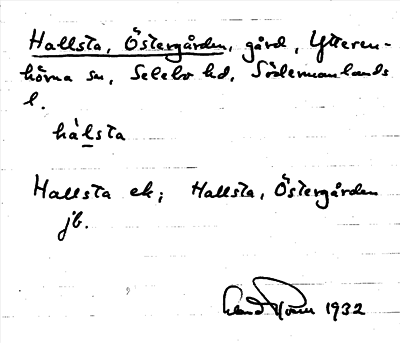 Hallsta, Östergården, gård, Ytteren-
hörna sn, Selebo hd, Södermanlands
l.
hàlsta
Hallsta ek; Hallsta, Östergården
jb.
1932